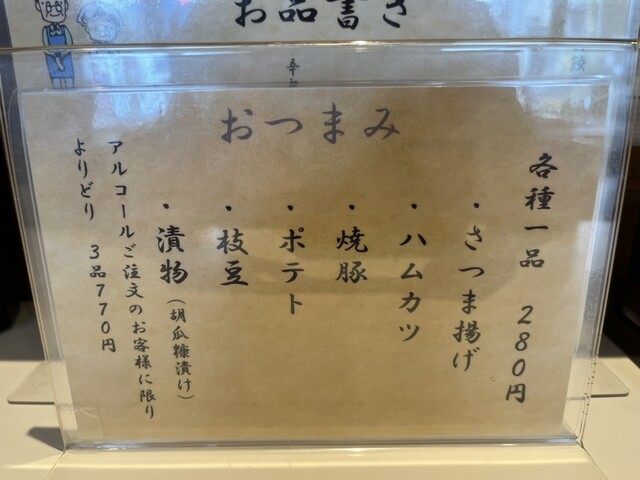 お品書き
おつまみ
各種一品 280円
・さつま揚げ
・ハムカツ
・焼豚
・ポテト
・枝豆
・漬物(胡瓜糠漬け)
アルコールご注文のお客様に限り
よりどり 3品770円